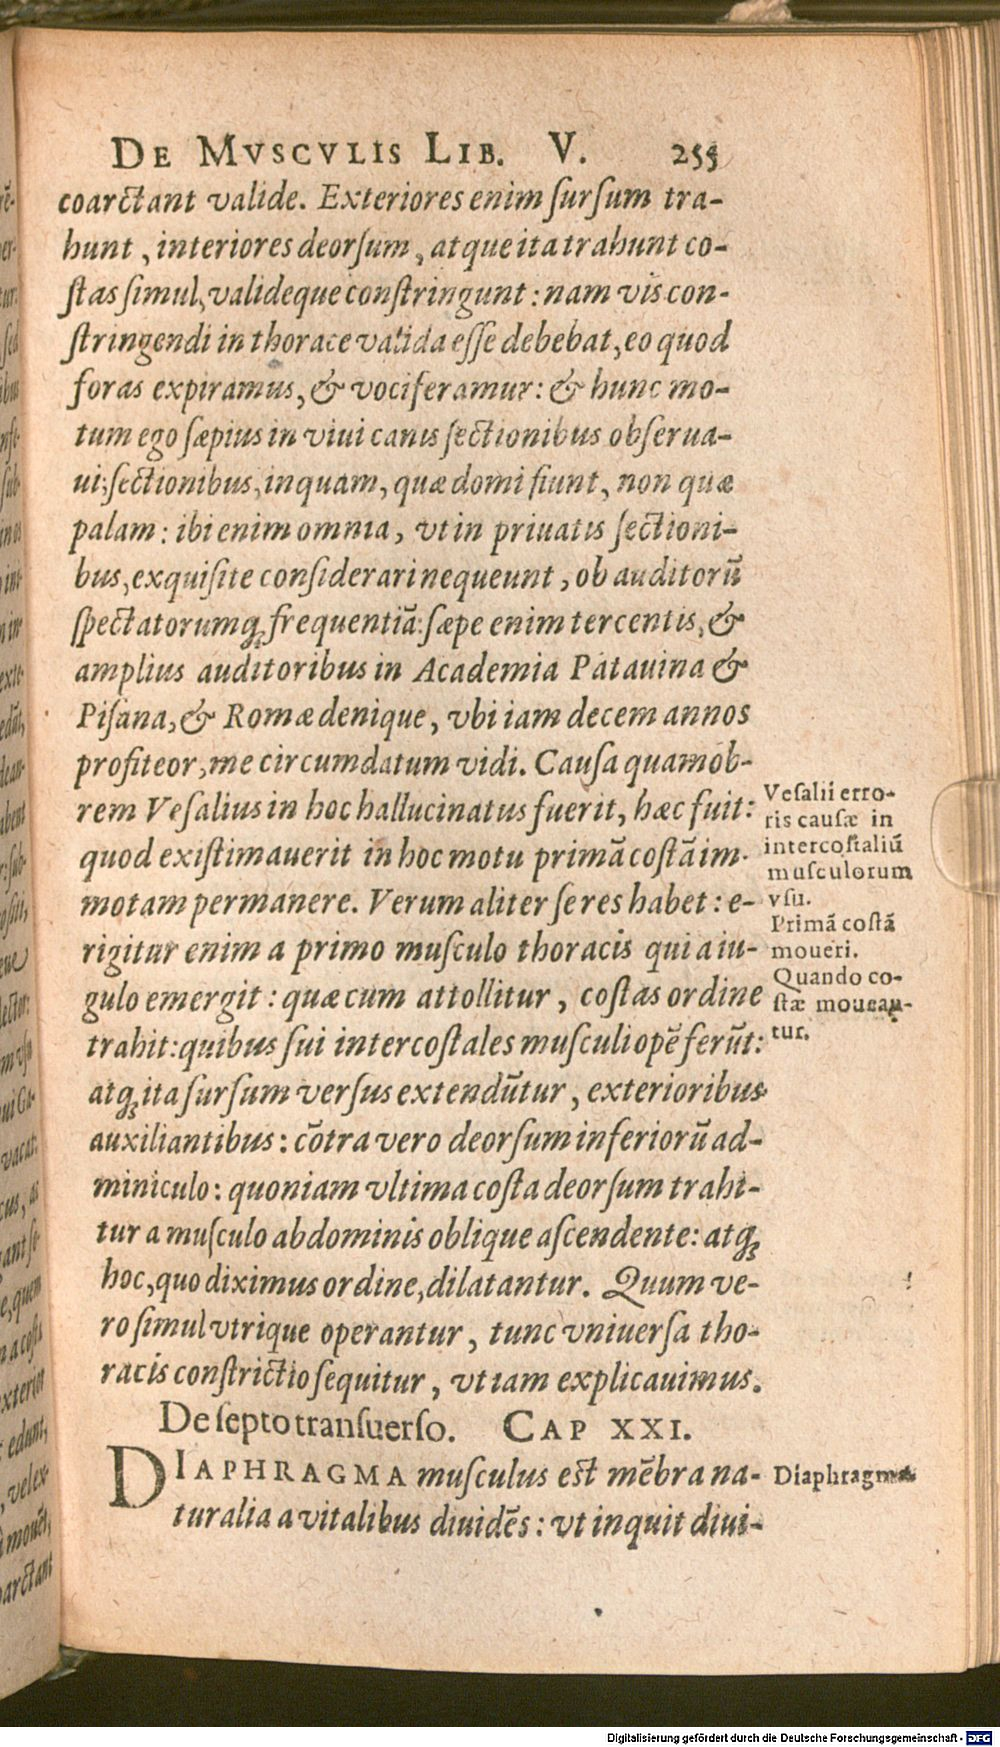 DE MVSCVLIS LIB. V. 255
coarctant valide. Exteriores enim ſurſum tra-
hunt, interiores deorſum, atque ita trahunt co-
ſtas ſimul, valideque conſtringunt: nam vis con-
ſtringendi in thorace valida eſſe debebat, eo quod
foras expiramus, & vociferamur: & hunc mo-
tum ego ſæpius in viui canis ſectionibus obſerua-
ui; ſectionibus, inquam, quæ domi fiunt, non quæ
palam: ibi enim omnia, vt in priuatis ſectioni-
bus, exquiſite conſiderari nequeunt, ob auditorũ
ſpectatorumq́; frequentiã: ſæpe enim tercentis, &
amplius auditoribus in Academia Patauina &
Piſana, & Romæ denique, vbi iam decem annos
profiteor, me circumdatum vidi. Cauſa quamob-
rem Veſalius in hoc hallucinatus fuerit, hæc fuit:
quod exiſtimauerit in hoc motu primã coſtã im-
motam permanere. Verum aliter ſe res habet: e-
rigitur enim a primo muſculo thoracis qui a iu-
gulo emergit: quæ cum attollitur, coſtas ordine
trahit: quibus ſui intercoſtales muſculi opẽ ferũt:
atq; ita ſurſum verſus extendũtur, exterioribus
auxiliantibus: cõtra vero deorſum inferiorũ ad-
miniculo: quoniam vltima coſta deorſum trahi-
tur a muſculo abdominis oblique aſcendente: atq;
hoc, quo diximus ordine, dilatantur. Quum ve-
ro ſimul vtrique operantur, tunc vniuerſa tho-
racis conſtrictio ſequitur, vt iam explicauimus.
De ſepto tranſuerſo. CAP XXI.
DIAPHRAGMA muſculus eſt mẽbra na-
turalia a vitalibus diuidẽs: vt inquit diui-
Veſalii erro-
ris cauſæ in
intercoſtaliũ
muſculorum
vſu.
Primã coſtã
moueri.
Quando co-
ſtæ mouean-
tur.
Diaphragma
Digitalisierung gefördert durch die Deutsche Forschungsgemeinschaft - DFG